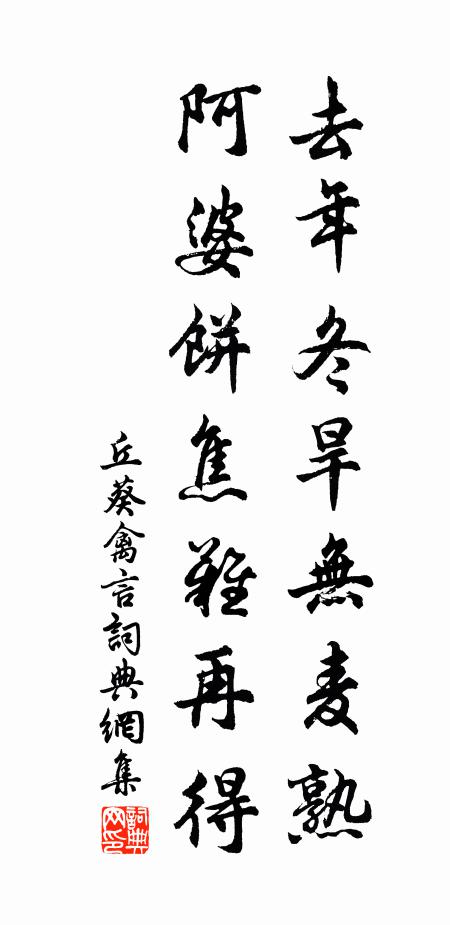 去年冬旱無麦熟
阿婆餅焦難再得
丘葵禽言詞典網集
詞典网印